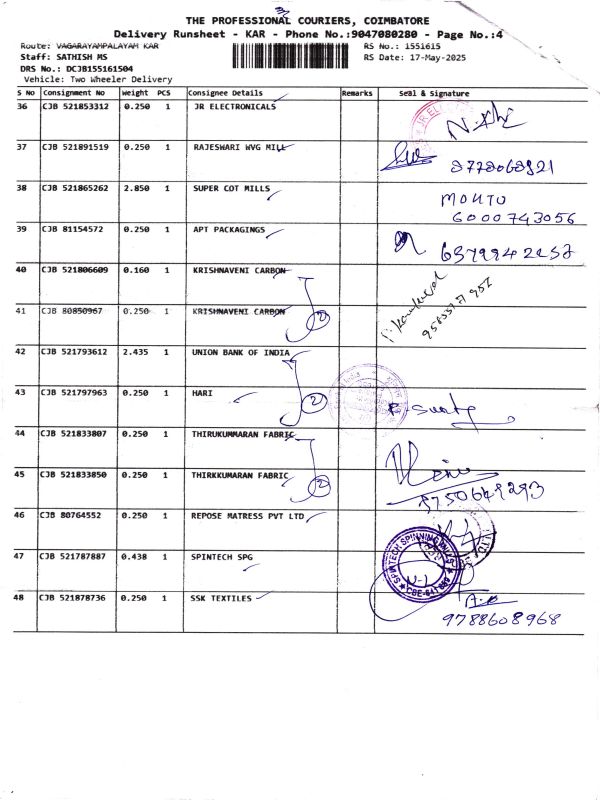 THE PROFESSIONAL COURIERS, COIMBATORE
Delivery Runsheet - KAR - Phone No.:9047080280 - Page No.:4
Route: VAGARAYAMPALAYAM KAR
RS No.: 1551615
Staff: SATHISH MS
RS Date: 17-May-2025
DRS No.: DCJB155161504
Vehicle: Two Wheeler Delivery
S No Consignment No Weight PCS Consignee Details Remarks Seal & Signature
36 CJB 521853312 0.250 1 JR ELECTRONICALS
37 CJB 521891519 0.250 1 RAJESWARI WVG MILL
38 CJB 521865262 2.850 1 SUPER COT MILLS
6000743056
39 CJB 81154572 0.250 1 APT PACKAGINGS
40 CJB 521806609 0.160 1 KRISHNAVENI CARBON
41 CJB 80850967 0.250 1 KRISHNAVENI CARBON
2
42 CJB 521793612 2.435 1 UNION BANK OF INDIA
43 CJB 521797963 0.250 1 HARI
2
44 CJB 521833807 0.250 1 THIRUKUMMARAN FABRIC
45 CJB 521833850 0.250 1 THIRKKUMARAN FABRIC
2
46 CJB 80764552 0.250 1 REPOSE MATRESS PVT LTD
47 CJB 521787887 0.438 1 SPINTECH SPG
48 CJB 521878736 0.250 1 SSK TEXTILES
9788608968